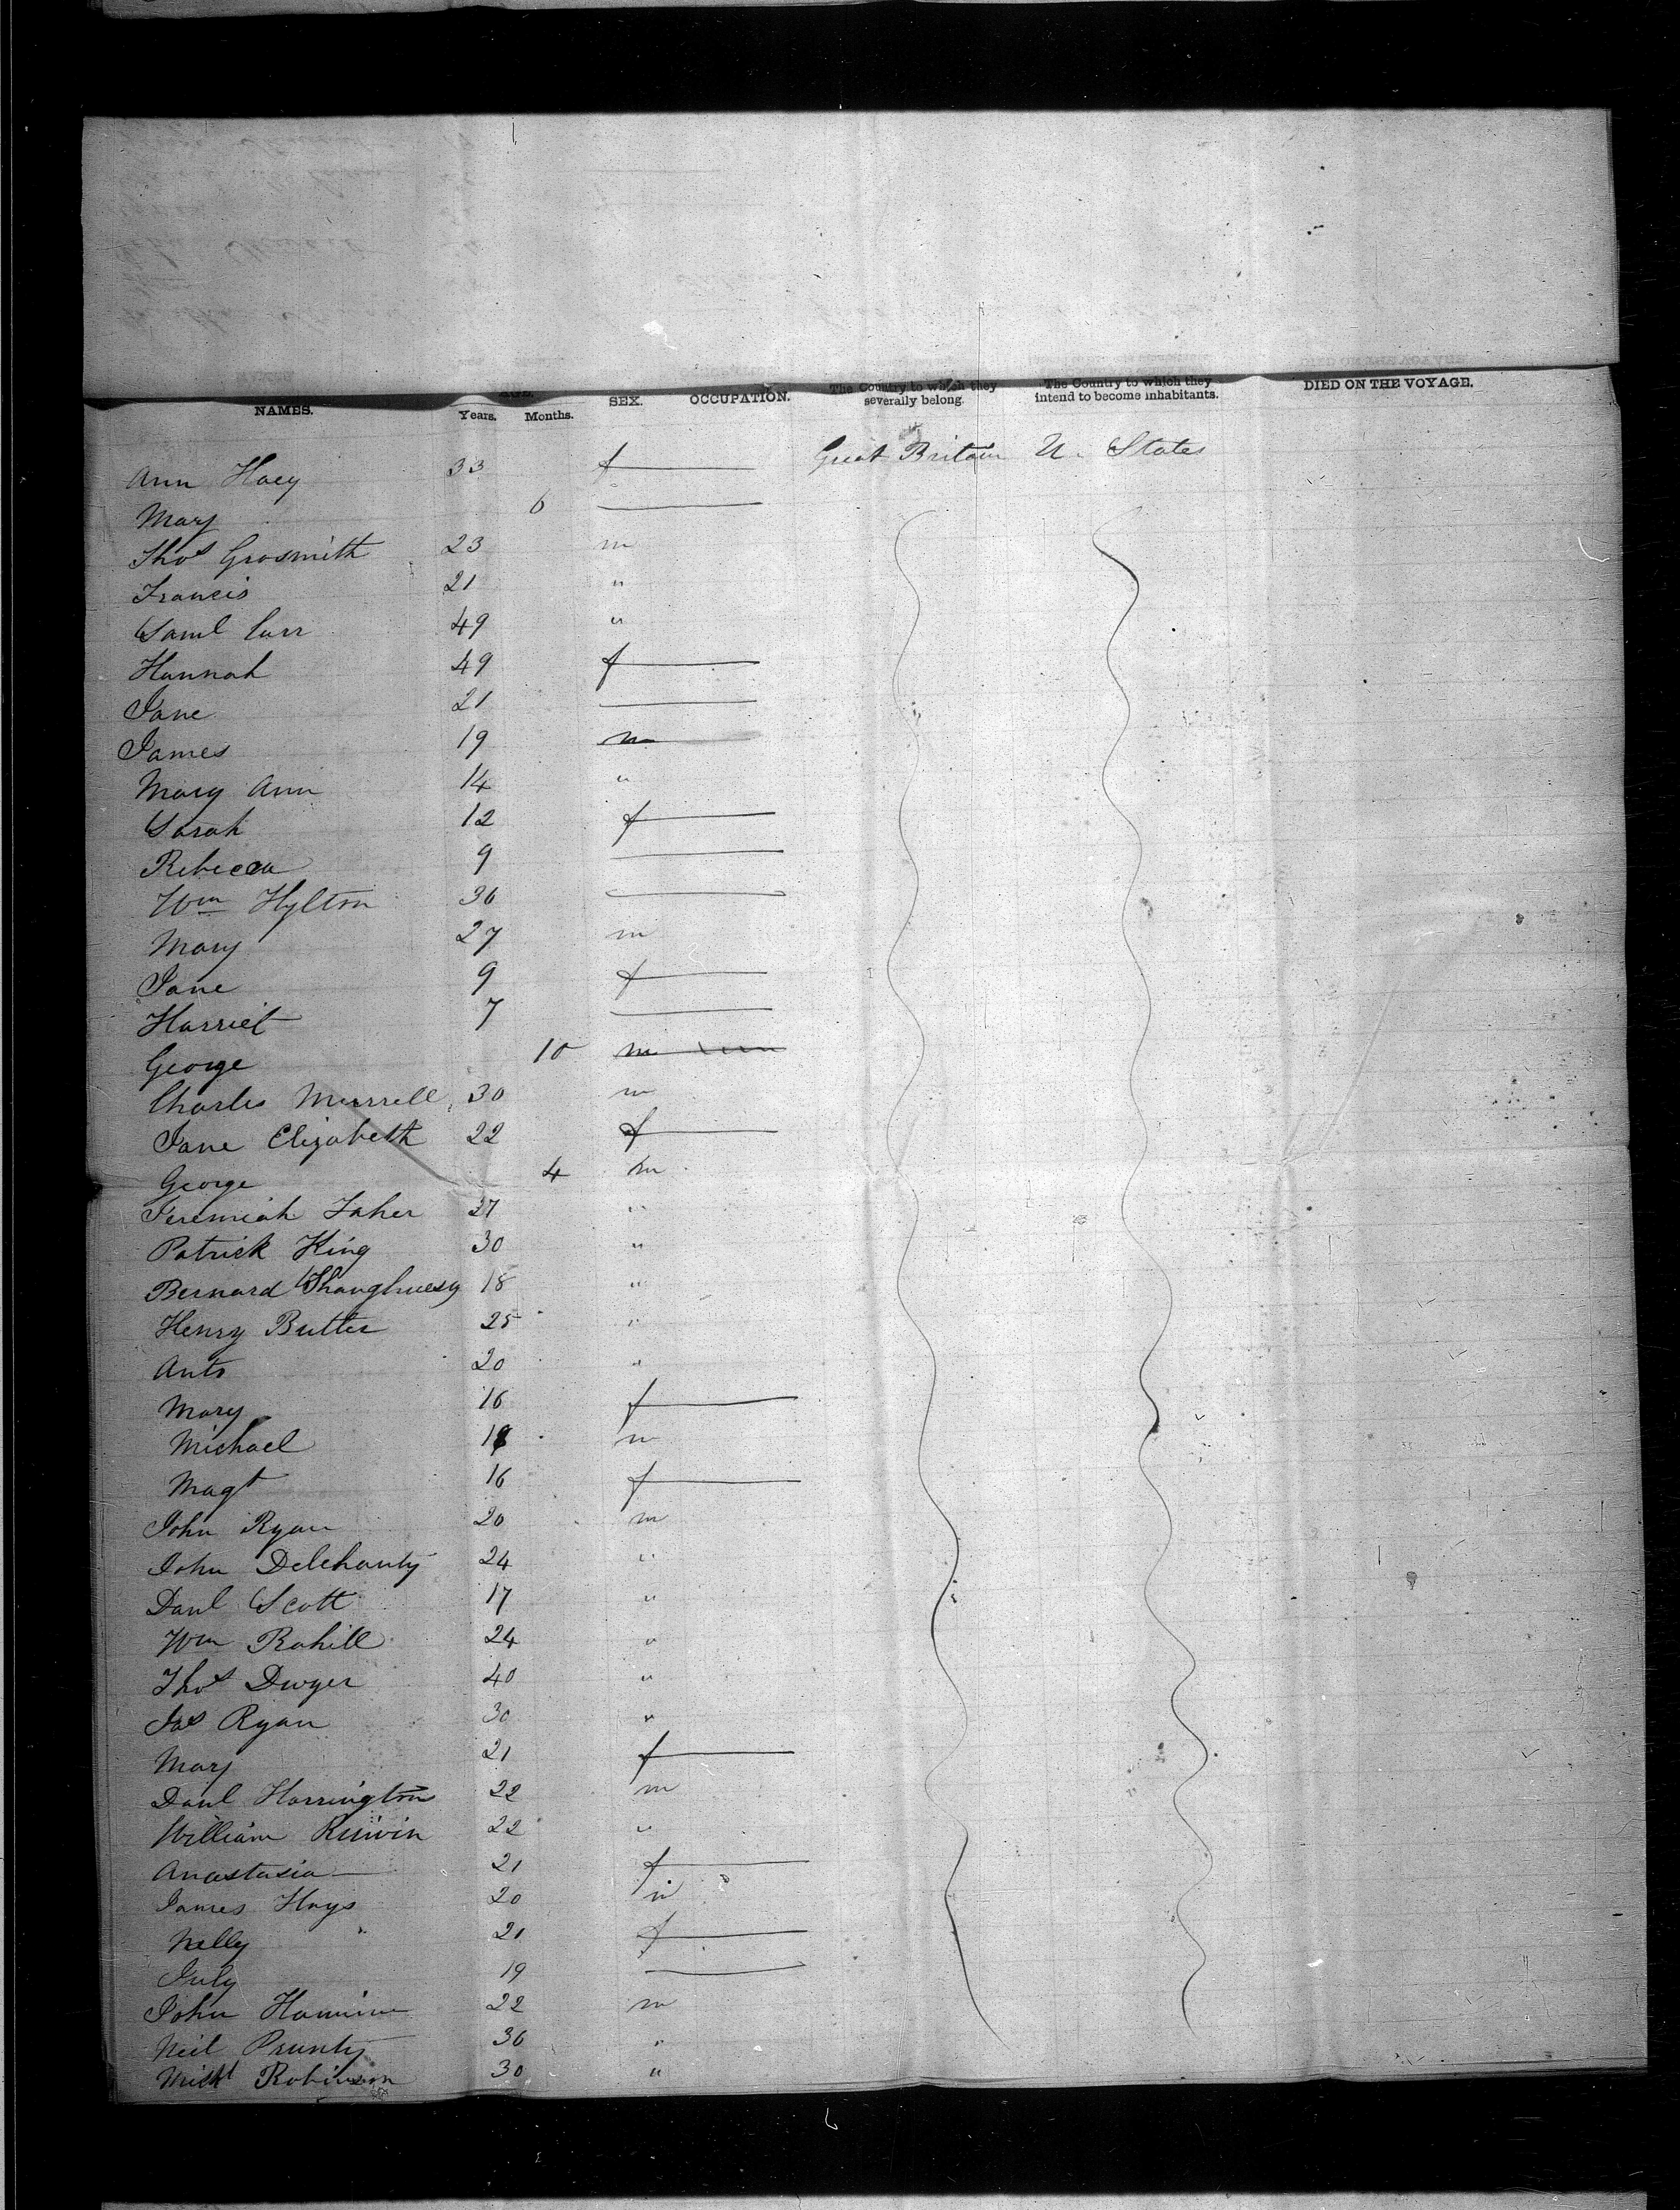 NAMES. AGE. Years. Months. SEX. OCCUPATION. The Country to which they severally belong. The Country to which they intend to become inhabitants. DIED ON THE VOYAGE.
Ann Hoey 33 f Great Britain U. States
Mary 6
Thos Grosmith 23 m
Francis 21 "
Saml Carr 49 "
Hannah 49 f
Jane 21
James 19 m
Mary Ann 14 "
Sarah 12 f
Rebecca 9
Wm Hylton 36
Mary 27 m
Jane 9 f
Harriet 7
George 10 m
Charles Murrell 30 m
Jane Elizabeth 22 f
George 4 m
Jeremiah Faher 27 "
Patrick King 30 "
Bernard 18 "
Henry Butler 25 "
Ants 20 "
Mary 16 f
Michael 18 m
Magt 16 f
John Ryan 20 m
John Delehanty 24 "
Danl Scott 17 "
Wm Rahill 24 "
Thos Dwyer 40 "
Jas Ryan 30 "
Mary 21 f
Danl Harrington 22 m
William 22 "
Anastasia 21 f
James Hays 20 m
Nelly 21 f
July 19
John 22 m
Neil Prunty 30 "
Michl Robinson 30 "